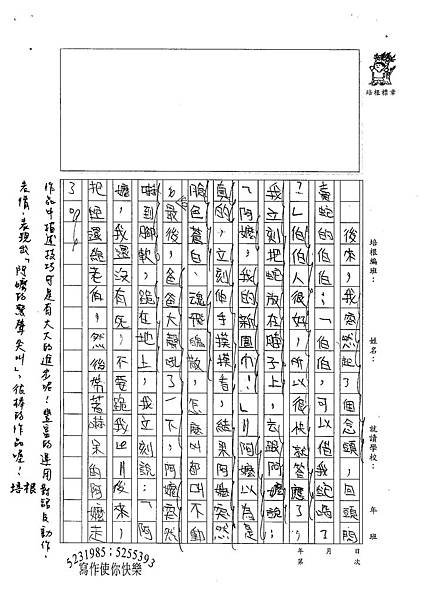 培根標章
培根編班：
姓名：
就讀學校：
年
班
年
月
日
第
次
後來，我突然起了個念頭，回頭問
賣蛇的伯伯：「伯伯，可以借我蛇嗎
？」伯伯人很好，所以很快就答應了，
我立刻把蛇放在脖子上，去跟阿嬤說：
「阿嬤，我的新圍巾！」阿嬤以為是
真的，立刻伸手摸摸看，結果阿嬤突然
臉色蒼白、魂飛魄散，怎麼叫都叫不動
。最後，爸爸大聲吼了一下，阿嬤突然
嚇到腳軟，跪在地上，我立刻說：「阿
嬤，我還沒有死，不要跪我！」後來，
把蛇還給老伯，然後帶著呆的阿嬤走
了。
作品中描述技巧可是有大大的進步喔！豐富的運用對話及動作、
表情，表現出「阿嬤的驚聲尖叫」，很棒的作品喔！
培根
5231985；5255393
寫作使你快樂